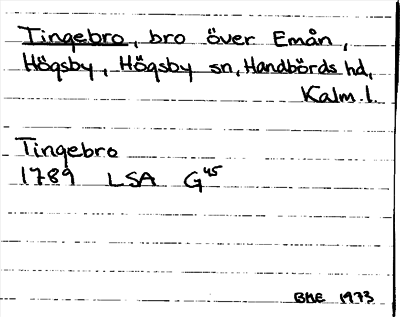 Tingebro, bro över Emån,
Högsby, Högsby sn, Handbörds hd,
Kalm.l.
Tingebro
1789 LSA G45
BME 1973